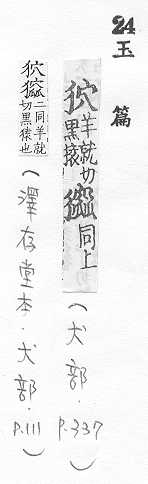 24 玉篇
狖 羊就切黑猿 同上 (犬部．P.337)
狖 二同羊就切黑猿也 (澤存堂本．犬部．P.111)